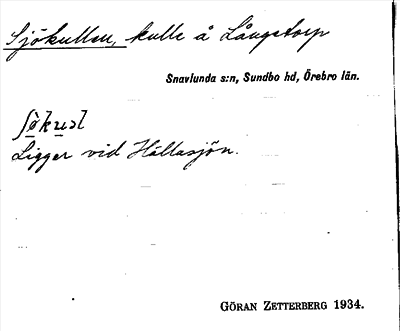 Sjökullen, kulle å Långetorp
Snavlunda s:n, Sundbo hd, Örebro län.
Ligger vid Hállasjön.
GÖRAN ZETTERBERG 1934.